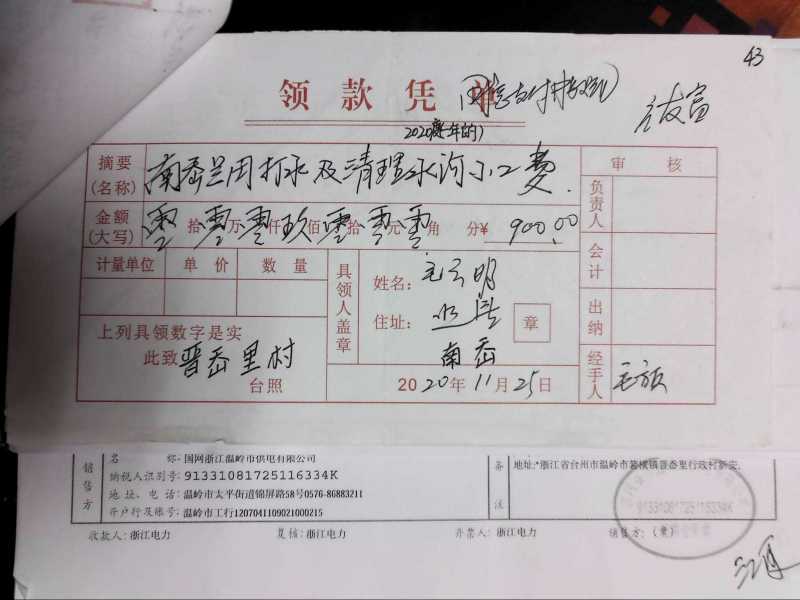 43
领款凭单
2020年的)
摘要
(名称)
南岙兰田打水及清理水河小工费.
审核
金额
(大写)
零拾零万零仟玖佰零拾零元零角 分¥ 900.00
负责人
计量单位 单价 数量
具领人盖章
姓名:
毛云明
会计
住址:
南岙
章
出纳
上列具领数字是实
此致 晋岙里村
台照
2020年11月25日
经手人
销售方
名 称: 国网浙江温岭市供电有限公司
纳税人识别号: 91331081725116334K
地址、电话: 温岭市太平街道锦屏路58号0576-86883211
开户行及账号: 温岭市工行1207041109021000215
备注
地址:*浙江省台州市温岭市箬横镇晋岙里行政村新安.
91331081725116334K
收款人: 浙江电力 复核: 浙江电力 开票人: 浙江电力 销售方: (章)